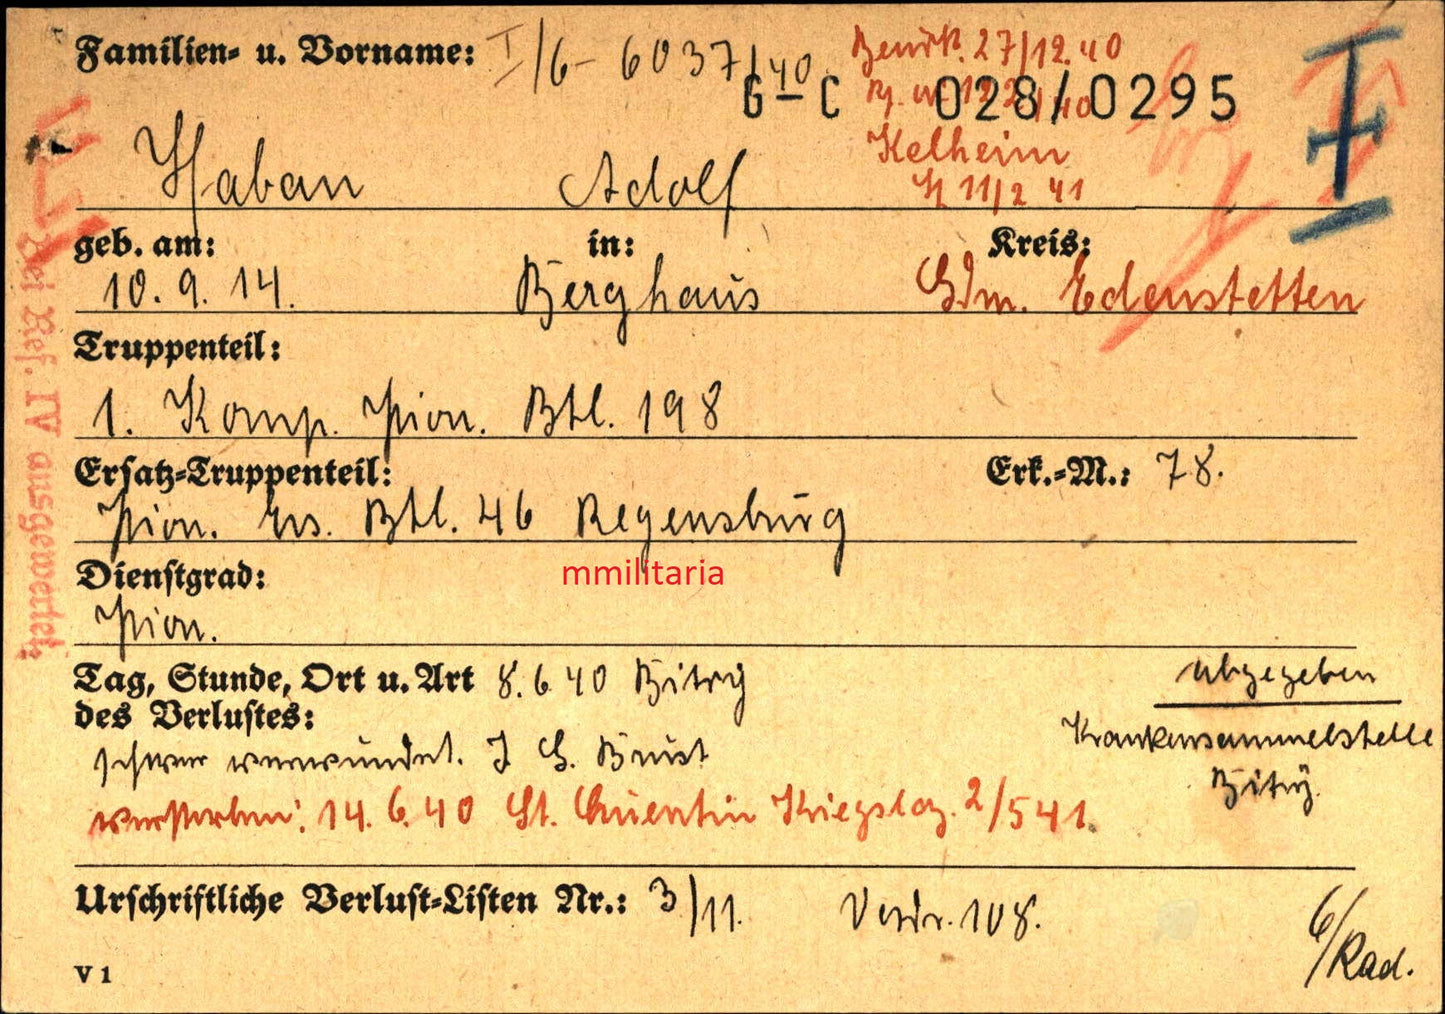 Familien- u. Vorname: I/6- 6037/40
Beurk. 27/12.40
G-C 028/0295
Kelheim
11/2 41
II
Haban Adolf
geb. am: in: Kreis:
10. 9. 14. Berghaus Gdm. Edenstetten
Truppenteil:
1. Komp. Pion. Btl. 198
Ersatz-Truppenteil: Erk.-M.: 78.
Pion. Ers. Btl. 46 Regensburg
mmilitaria
Dienstgrad:
Pion.
Tag, Stunde, Ort u. Art 8. 6 40 Bitry
des Verlustes:
schwer verwundet. J. G. Brust
verstorben: 14. 6. 40 St. Quentin Kriegslaz. 2/541.
abgegeben
Krankensammelstelle
Bitry.
Urschriftliche Verlust-Listen Nr.: 3/11. 108.
6/Rad.
V 1
Bei Ref. IV ausgewertet